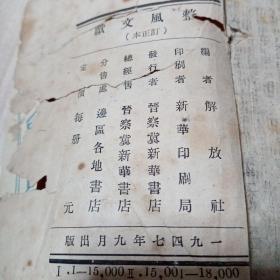 整風文獻
(訂正本)
編者 解放社
印刷者 新華印刷局
發行者 晉察冀新華書店
總經售 晉察冀新華書店
分售處 邊區各地書店
定價每册 元
一九四七年九月出版
I.1—15,000 II.15,001—18,000